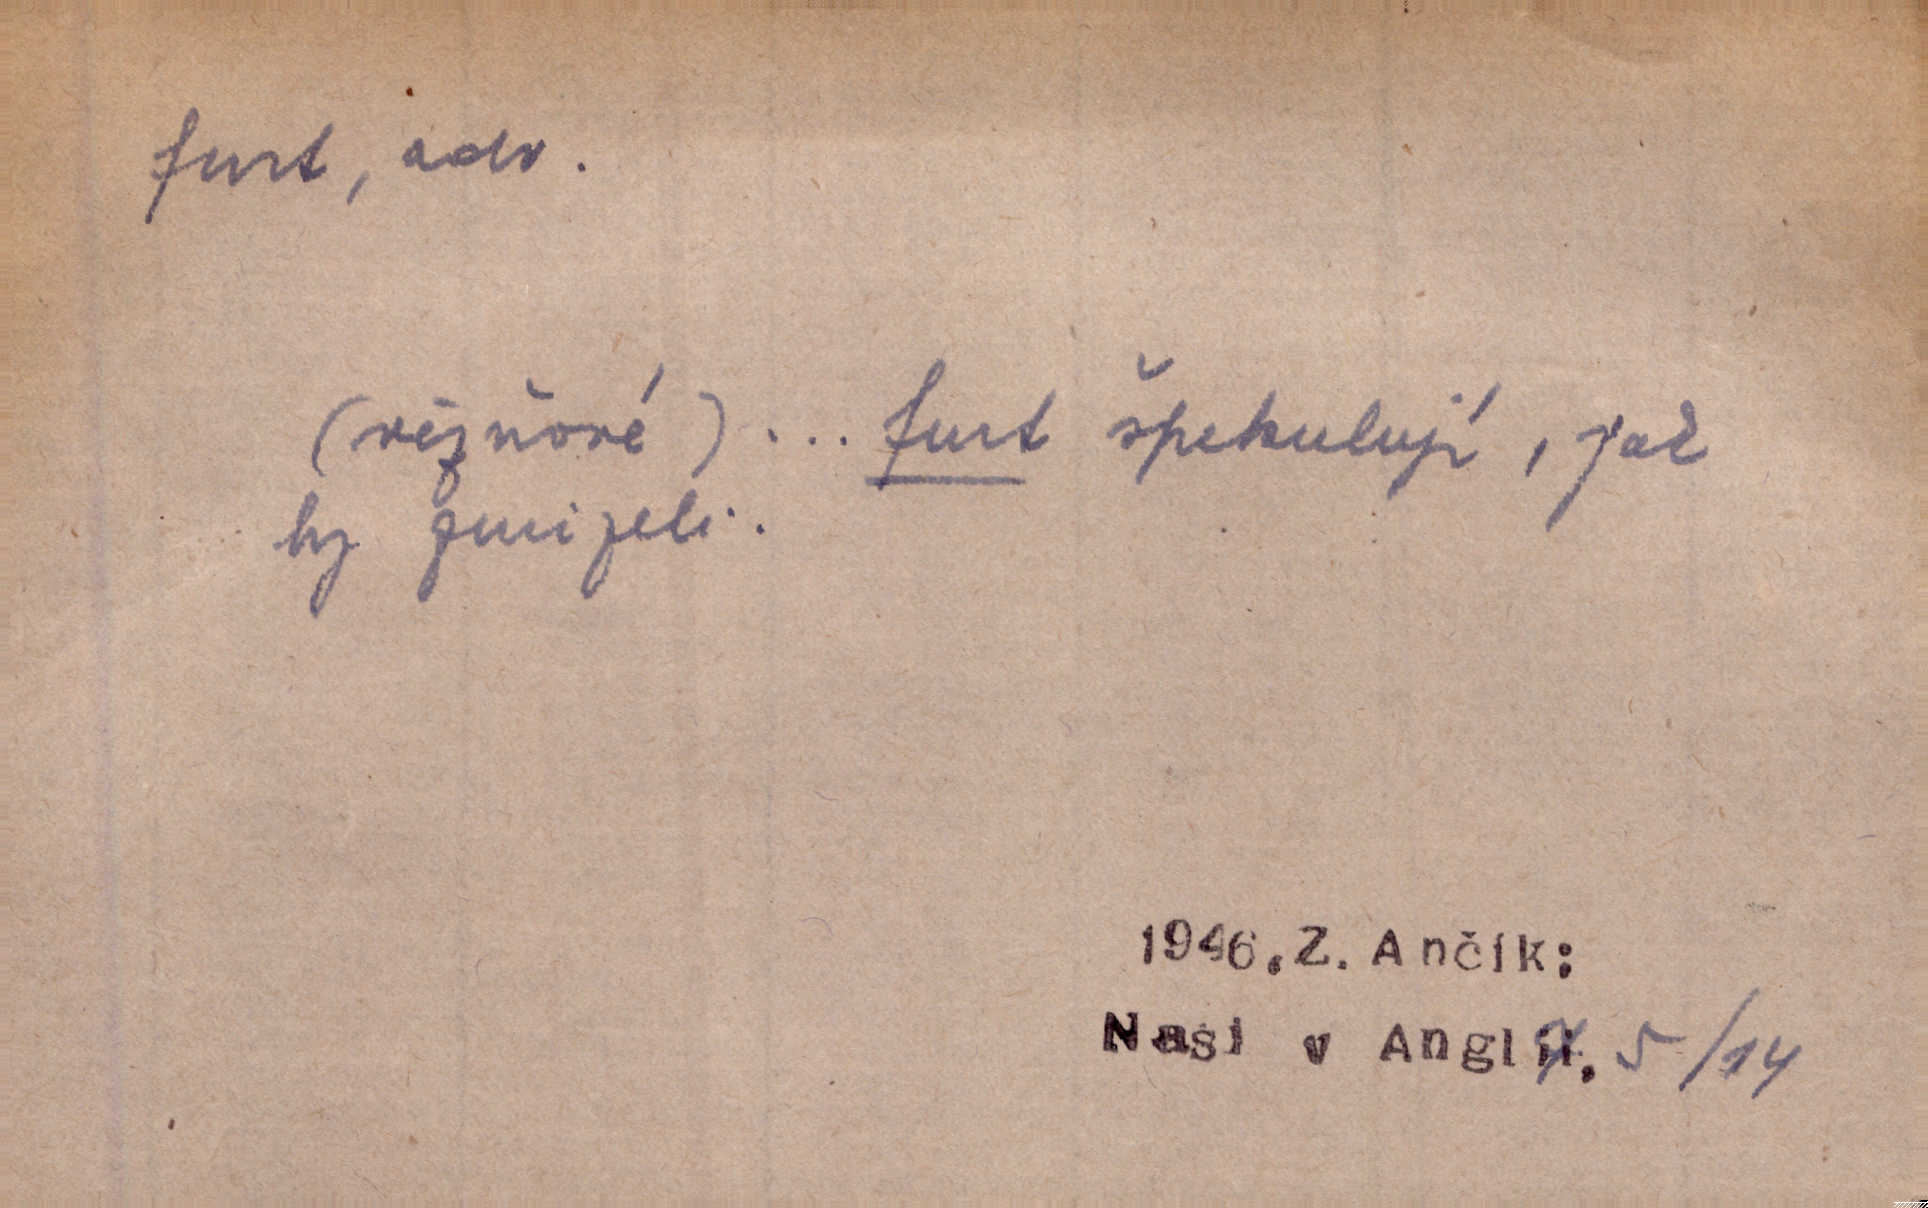 furt, adv.
(vězňové) ... furt špekulují, jak
by zmizeli..
1946. Z. Ančík:
Naši v Anglii. 5/14